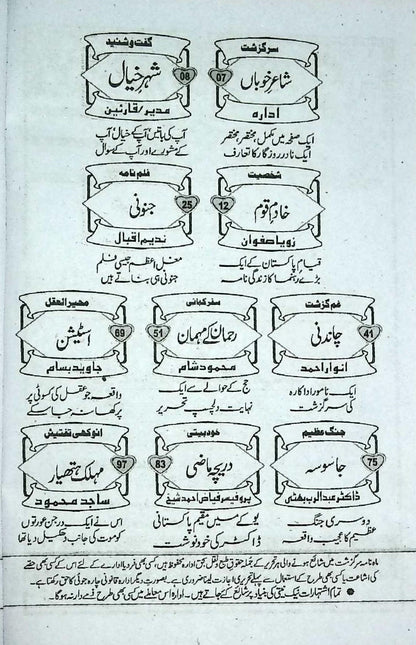 سرگزشت
شاعر خوباں
07
ادارہ
ایک صفحے میں مکمل، مختصر مختصر
ایک نادر روزگار کا تعارف
گفت و شنید
شہر خیال
08
مدیر/قارئین
آپ کی باتیں آپ کے خیال، آپ
کے مشورے اور آپ کے سوال
شخصیت
خادم قوم
12
زویا صفوان
قیام پاکستان کے ایک
بڑے رہنما کا زندگی نامہ
فلم نامہ
جنونی
25
ندیم اقبال
مغل اعظم جیسی فلم
جنونی ہی بناتے ہیں
غم گزشت
چاندنی
41
انوار احمد
ایک نامور اداکارہ
کی سرگزشت
سفر کہانی
رحمان کے مہمان
51
محمود شام
حج کے حوالے سے ایک
نہایت دلچسپ تحریر
محیر العقل
اسٹیشن
69
جاوید بسام
واقعہ جو عقل کی کسوٹی پر
پرکھا نہ جا سکے
جنگ عظیم
جاسوسہ
75
ڈاکٹر عبدالرب بھٹی
دوسری جنگ
عظیم کا عجیب واقعہ
خود بیتی
دریچہ ماضی
83
پروفیسر فیاض احمد شیخ
یو کے میں مقیم پاکستانی
ڈاکٹر کی خود نوشت
انوکھی تفتیش
مہلک ہتھیار
97
ساجد محمود
اس نے ایک درجن عورتوں
کو موت کی جانب دھکیل دیا تھا
ماہنامہ سرگزشت میں شائع ہونے والی ہر تحریر کے جملہ حقوق طبع و نقل بحق ادارہ محفوظ ہیں، کسی بھی فرد یا ادارے کے لیے اس کے کسی بھی حصے
کی اشاعت یا کسی بھی طرح کے استعمال سے پہلے تحریری اجازت لینا ضروری ہے۔ بصورت دیگر ادارہ قانونی چارہ جوئی کا حق رکھتا ہے۔
● تمام اشتہارات نیک نیتی کی بنیاد پر شائع کیے جاتے ہیں۔ ادارہ اس معاملے میں کسی بھی طرح ذمے دار نہ ہوگا۔